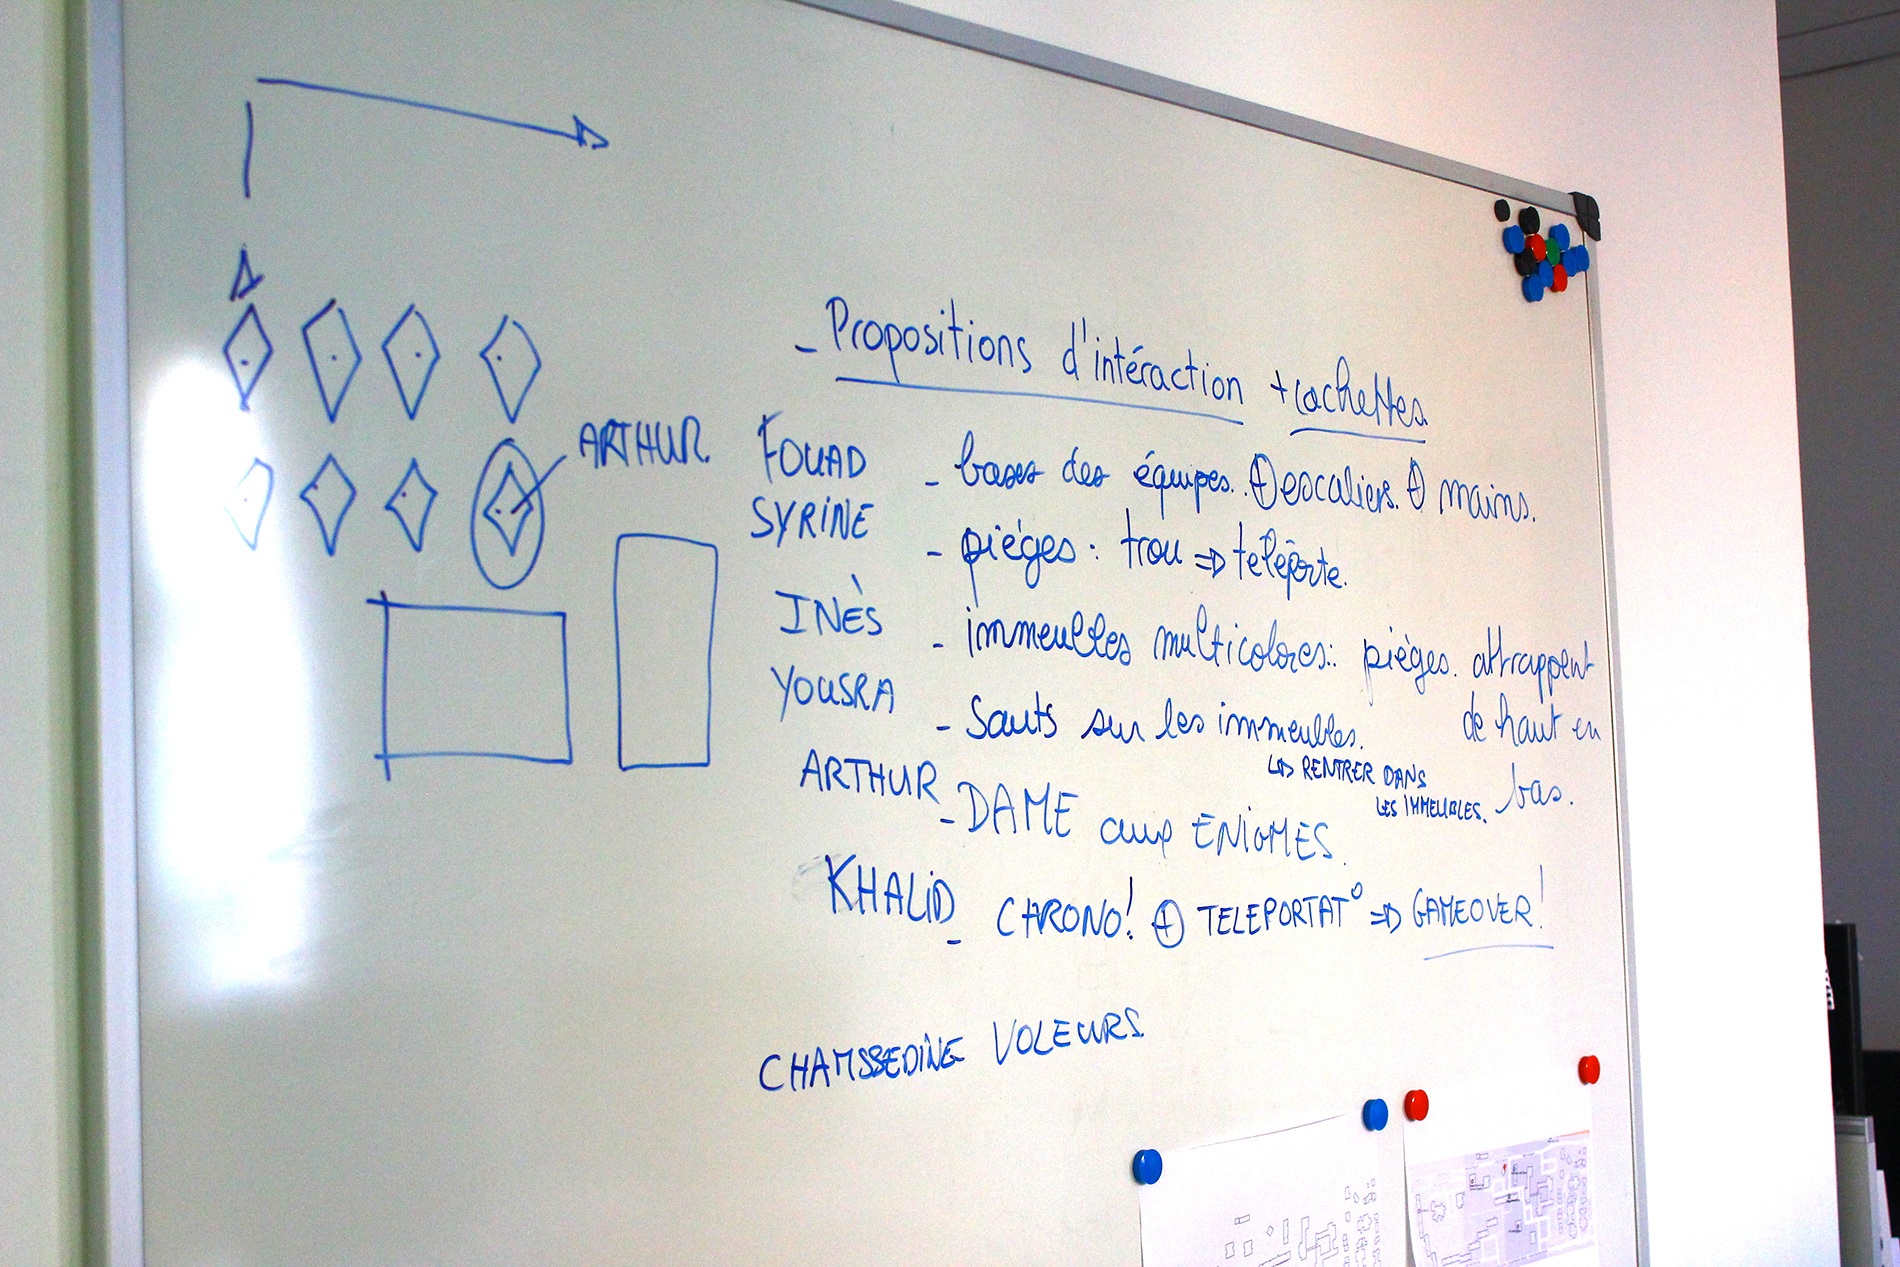 - Propositions d'intéraction + cachettes.
ARTHUR.
FOUAD - bases des équipes. ⊕ escaliers. ⊕ mains.
SYRINE - pièges : trou => téléporte.
INÈS - immeubles multicolores : pièges. attrappent de haut en bas.
YOUSRA - Sauts sur les immeubles.
↳ RENTRER DANS
LES IMMEUBLES.
ARTHUR - DAME aux ENIGMES.
KHALID - CHRONO! ⊕ TELEPORTAT° => GAMEOVER!
CHAMSSEDINE VOLEURS.